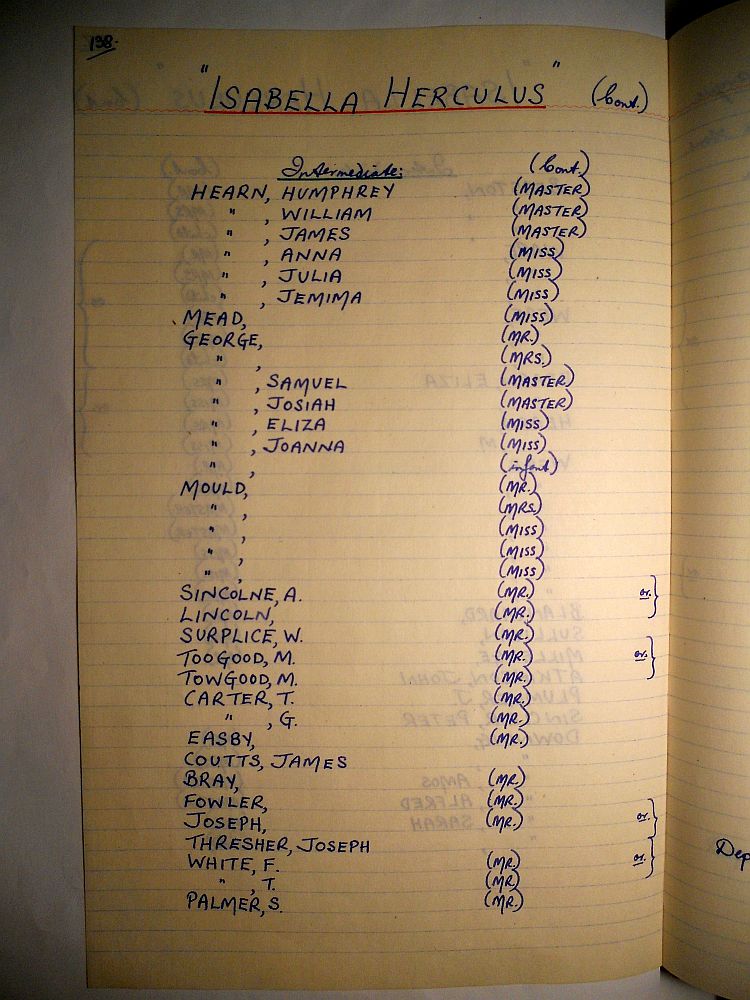 198.
"ISABELLA HERCULUS" (Cont.)
Intermediate: (Cont.)
HEARN, HUMPHREY (MASTER)
" , WILLIAM (MASTER)
" , JAMES (MASTER)
" , ANNA (MISS)
" , JULIA (MISS)
" , JEMIMA (MISS)
MEAD, (MISS)
GEORGE, (MR.)
" , (MRS.)
" , SAMUEL (MASTER)
" , JOSIAH (MASTER)
" , ELIZA (MISS)
" , JOANNA (MISS)
" , (infant)
MOULD, (MR.)
" , (MRS.)
" , (MISS)
" , (MISS)
" , (MISS)
SINCOLNE, A. (MR.) or. }
LINCOLN, (MR.)
SURPLICE, W. (MR.)
TOOGOOD, M. (MR.) or. }
TOWGOOD, M. (MR.)
CARTER, T. (MR.)
" , G. (MR.)
EASBY, (MR.)
COUTTS, JAMES
BRAY, (MR.)
FOWLER, (MR.)
JOSEPH, (MR.) or. }
THRESHER, JOSEPH
WHITE, F. (MR.) or. }
" , T. (MR.)
PALMER, S. (MR.)
Dep